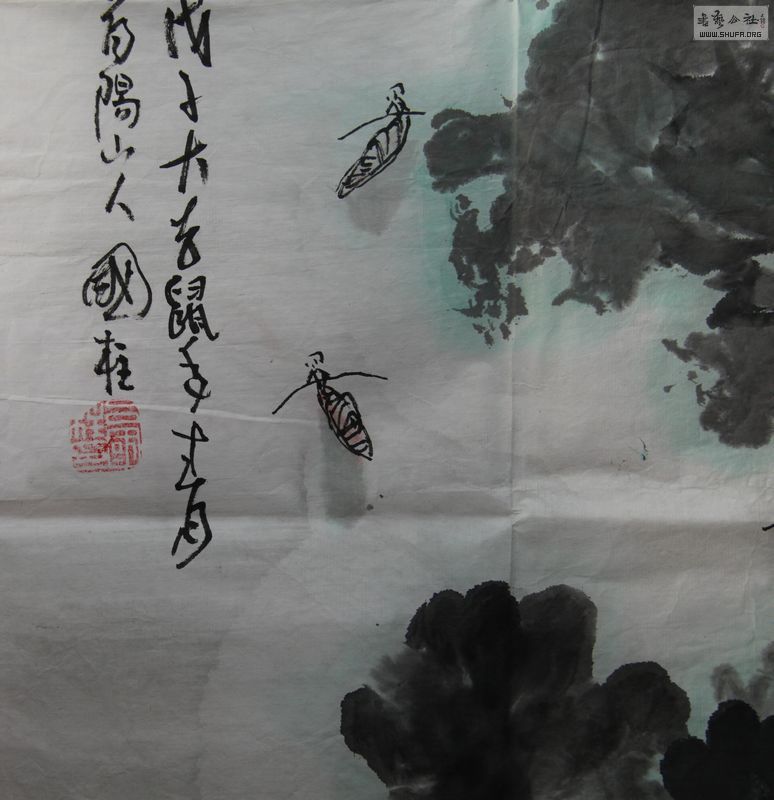 戊子大吉鼠年春月
陽山人國柱
書藝公社
WWW.SHUFA.ORG